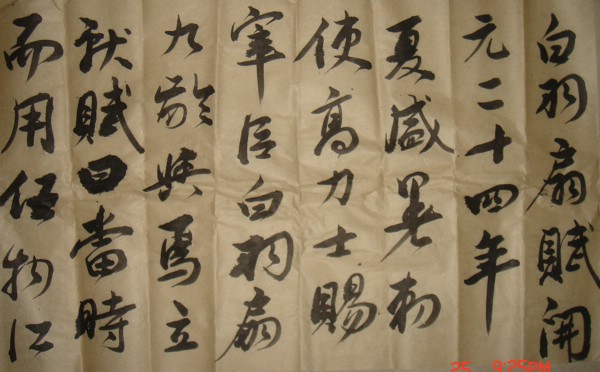 白羽扇賦開
元二十四年
夏盛暑勅
使高力士賜
宰臣白羽扇
九齡與焉立
献賦曰當時
而用任物江